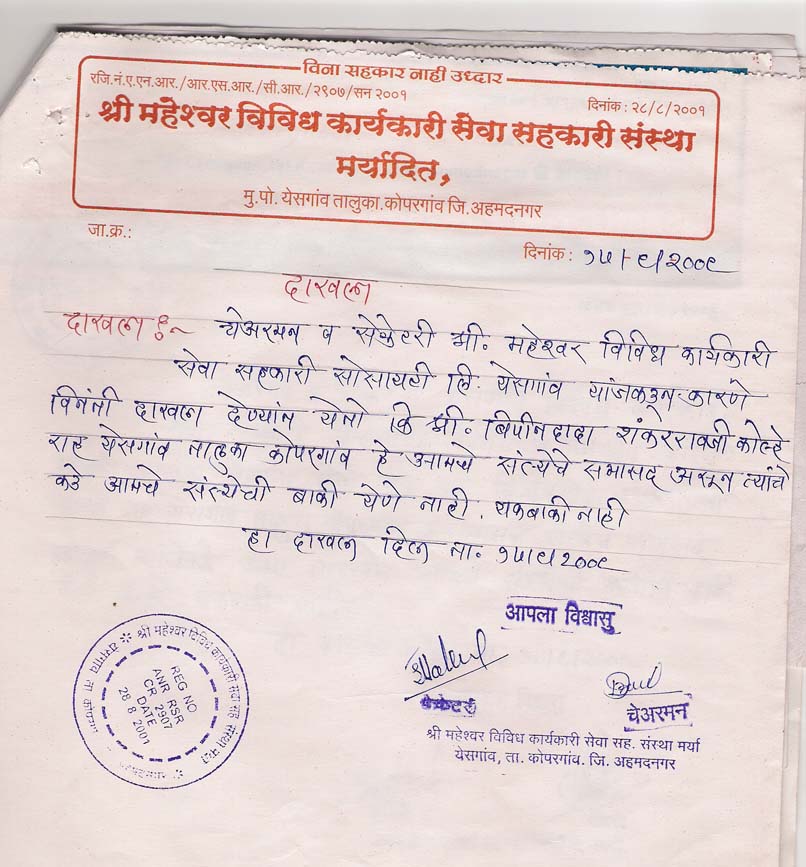 विना सहकार नाही उध्दार
रजि.नं.ए.एन.आर./आर.एस.आर./सी.आर./२९०७/सन २००१
दिनांक: २८/८/२००१
श्री महेश्वर विविध कार्यकारी सेवा सहकारी संस्था
मर्यादित,
मु.पो. येसगांव तालुका.कोपरगांव जि.अहमदनगर
जा.क्र.:
दिनांक: १५/९/२००९
दाखला
दाखला :- चेअरमन व सेक्रेटरी श्री. महेश्वर विविध कार्यकारी
सेवा सहकारी सोसायटी लि. येसगांव यांजकडून कारणे
विनंती दाखला देण्यांत येतो कि श्री. बिपीनदादा शंकररावजी कोल्हे
राह येसगांव तालुका कोपरगांव हे आमचे संस्थेचे सभासद असून त्यांचे
कडे आमचे संस्थेची बाकी येणे नाही. थकबाकी नाही
हा दाखला दिला ता. १५/९/२००९
आपला विश्वासु
सेक्रेटरी
चेअरमन
श्री महेश्वर विविध कार्यकारी सेवा सह. संस्था मर्या
येसगांव, ता. कोपरगांव. जि. अहमदनगर
श्री महेश्वर विविध कार्यकारी सेवा सह संस्था
REG NO
ANR RSR
CR 2907
DATE
28 8 2001